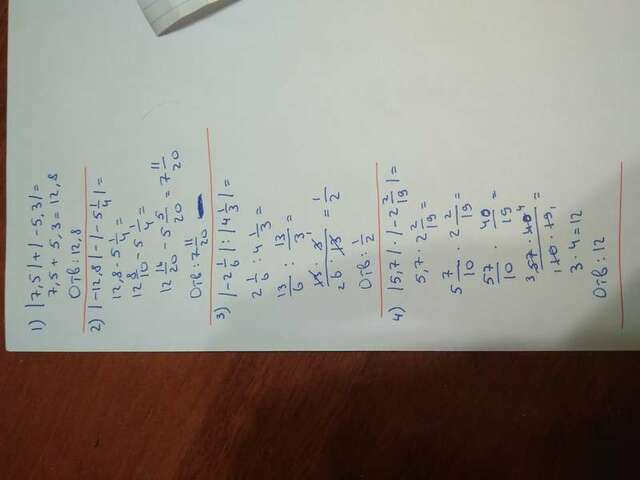 1) |7,5|+|-5,3|=
7,5+5,3=12,8
Отв: 12,8
2) |-12,8|-|-5 1/4|=
12,8-5 1/4=
12 8/10-5 1/4=
12 16/20-5 5/20=7 11/20
Отв: 7 11/20
3) |-2 1/6|:|4 1/3|=
2 1/6:4 1/3=
13/6:13/3=
13·3/6·13=1/2
Отв: 1/2
4) |5,7|·|-2 2/19|=
5,7·2 2/19=
5 7/10·2 2/19
57/10·40/19
57·40/10·19=
3·4=12
Отв: 12